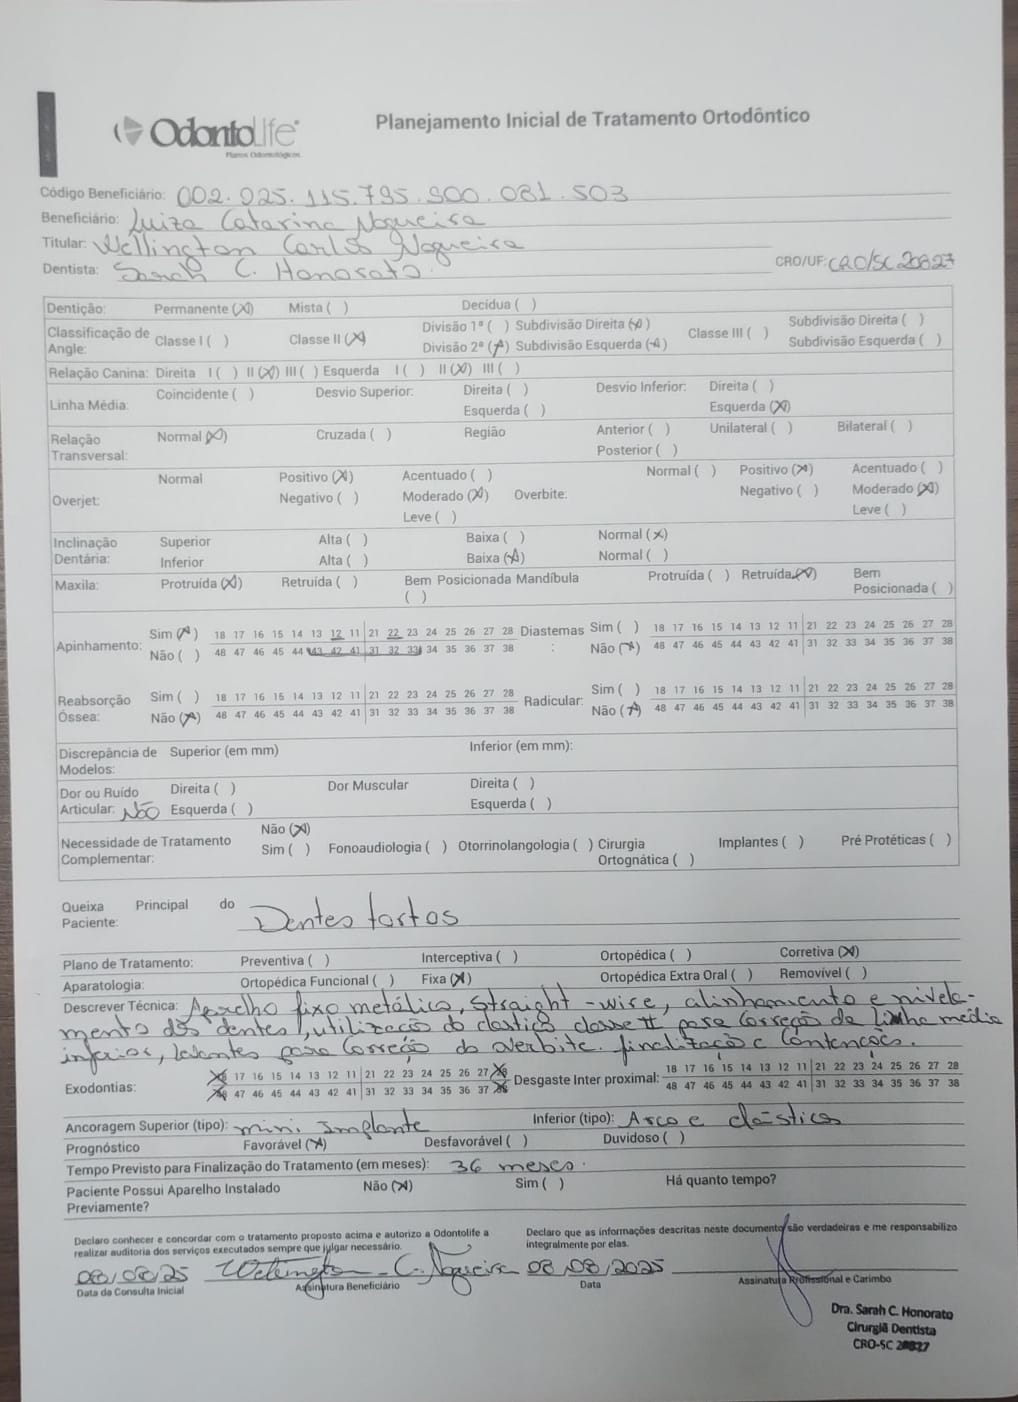 OdontoLife
Planos Odontológicos
Planejamento Inicial de Tratamento Ortodôntico
Código Beneficiário: 002.025.115.795.900.081.503
Beneficiário: Luiza Catarina Nogueira
Titular: Wellington Carlos Nogueira
Dentista: Sarah C. Honorato. CRO/UF: CRO/SC 20827
Dentição: Permanente (X) Mista ( ) Decídua ( )
Classificação de Angle: Classe I ( ) Classe II (X) Divisão 1ª ( ) Subdivisão Direita (X) Classe III ( ) Subdivisão Direita ( )
Divisão 2ª (X) Subdivisão Esquerda (X) Subdivisão Esquerda ( )
Relação Canina: Direita I ( ) II (X) III ( ) Esquerda I ( ) II (X) III ( )
Linha Média: Coincidente ( ) Desvio Superior: Direita ( ) Desvio Inferior: Direita ( )
Esquerda ( ) Esquerda (X)
Relação Transversal: Normal (X) Cruzada ( ) Região Anterior ( ) Unilateral ( ) Bilateral ( )
Posterior ( )
Overjet: Normal Positivo (X) Acentuado ( ) Overbite: Normal ( ) Positivo (X) Acentuado ( )
Negativo ( ) Moderado (X) Negativo ( ) Moderado (X)
Leve ( ) Leve ( )
Inclinação Dentária: Superior Alta ( ) Baixa ( ) Normal (X)
Inferior Alta ( ) Baixa (X) Normal ( )
Maxila: Protruída (X) Retruída ( ) Bem Posicionada ( ) Mandíbula Protruída ( ) Retruída (X) Bem Posicionada ( )
Apinhamento: Sim (X) 18 17 16 15 14 13 12 11 21 22 23 24 25 26 27 28 Diastemas: Sim ( ) 18 17 16 15 14 13 12 11 21 22 23 24 25 26 27 28
Não ( ) 48 47 46 45 44 43 42 41 31 32 33 34 35 36 37 38 Não (X) 48 47 46 45 44 43 42 41 31 32 33 34 35 36 37 38
Reabsorção Óssea: Sim ( ) 18 17 16 15 14 13 12 11 21 22 23 24 25 26 27 28 Radicular: Sim ( ) 18 17 16 15 14 13 12 11 21 22 23 24 25 26 27 28
Não (X) 48 47 46 45 44 43 42 41 31 32 33 34 35 36 37 38 Não (X) 48 47 46 45 44 43 42 41 31 32 33 34 35 36 37 38
Discrepância de Modelos: Superior (em mm) Inferior (em mm):
Dor ou Ruído Articular: Não Direita ( ) Dor Muscular Direita ( )
Esquerda ( ) Esquerda ( )
Necessidade de Tratamento Complementar: Não (X)
Sim ( ) Fonoaudiologia ( ) Otorrinolangologia ( ) Cirurgia Ortognática ( ) Implantes ( ) Pré Protéticas ( )
Queixa Principal do Paciente: Dentes tortos
Plano de Tratamento: Preventiva ( ) Interceptiva ( ) Ortopédica ( ) Corretiva (X)
Aparatologia: Ortopédica Funcional ( ) Fixa (X) Ortopédica Extra Oral ( ) Removível ( )
Descrever Técnica: Aparelho fixo metálico, Straight-wire, alinhamento e nivela-
mento dos dentes, utilização do elastico classe II para correção da linha média
inferior, levantes para correção do overbite. finalização e contenções.
Exodontias: 18 17 16 15 14 13 12 11 21 22 23 24 25 26 27 28 Desgaste Inter proximal: 18 17 16 15 14 13 12 11 21 22 23 24 25 26 27 28
48 47 46 45 44 43 42 41 31 32 33 34 35 36 37 38 48 47 46 45 44 43 42 41 31 32 33 34 35 36 37 38
Ancoragem Superior (tipo): mini Implante Inferior (tipo): Arco e elástico
Prognóstico Favorável (X) Desfavorável ( ) Duvidoso ( )
Tempo Previsto para Finalização do Tratamento (em meses): 36 meses.
Paciente Possui Aparelho Instalado Previamente? Não (X) Sim ( ) Há quanto tempo?
Declaro conhecer e concordar com o tratamento proposto acima e autorizo a Odontolife a
realizar auditoria dos serviços executados sempre que julgar necessário.
Declaro que as informações descritas neste documento são verdadeiras e me responsabilizo
integralmente por elas.
08/08/25 Wellington C. Nogueira 08/08/2025
Data da Consulta Inicial Assinatura Beneficiário Data Assinatura Profissional e Carimbo
Dra. Sarah C. Honorato
Cirurgiã Dentista
CRO-SC 20827